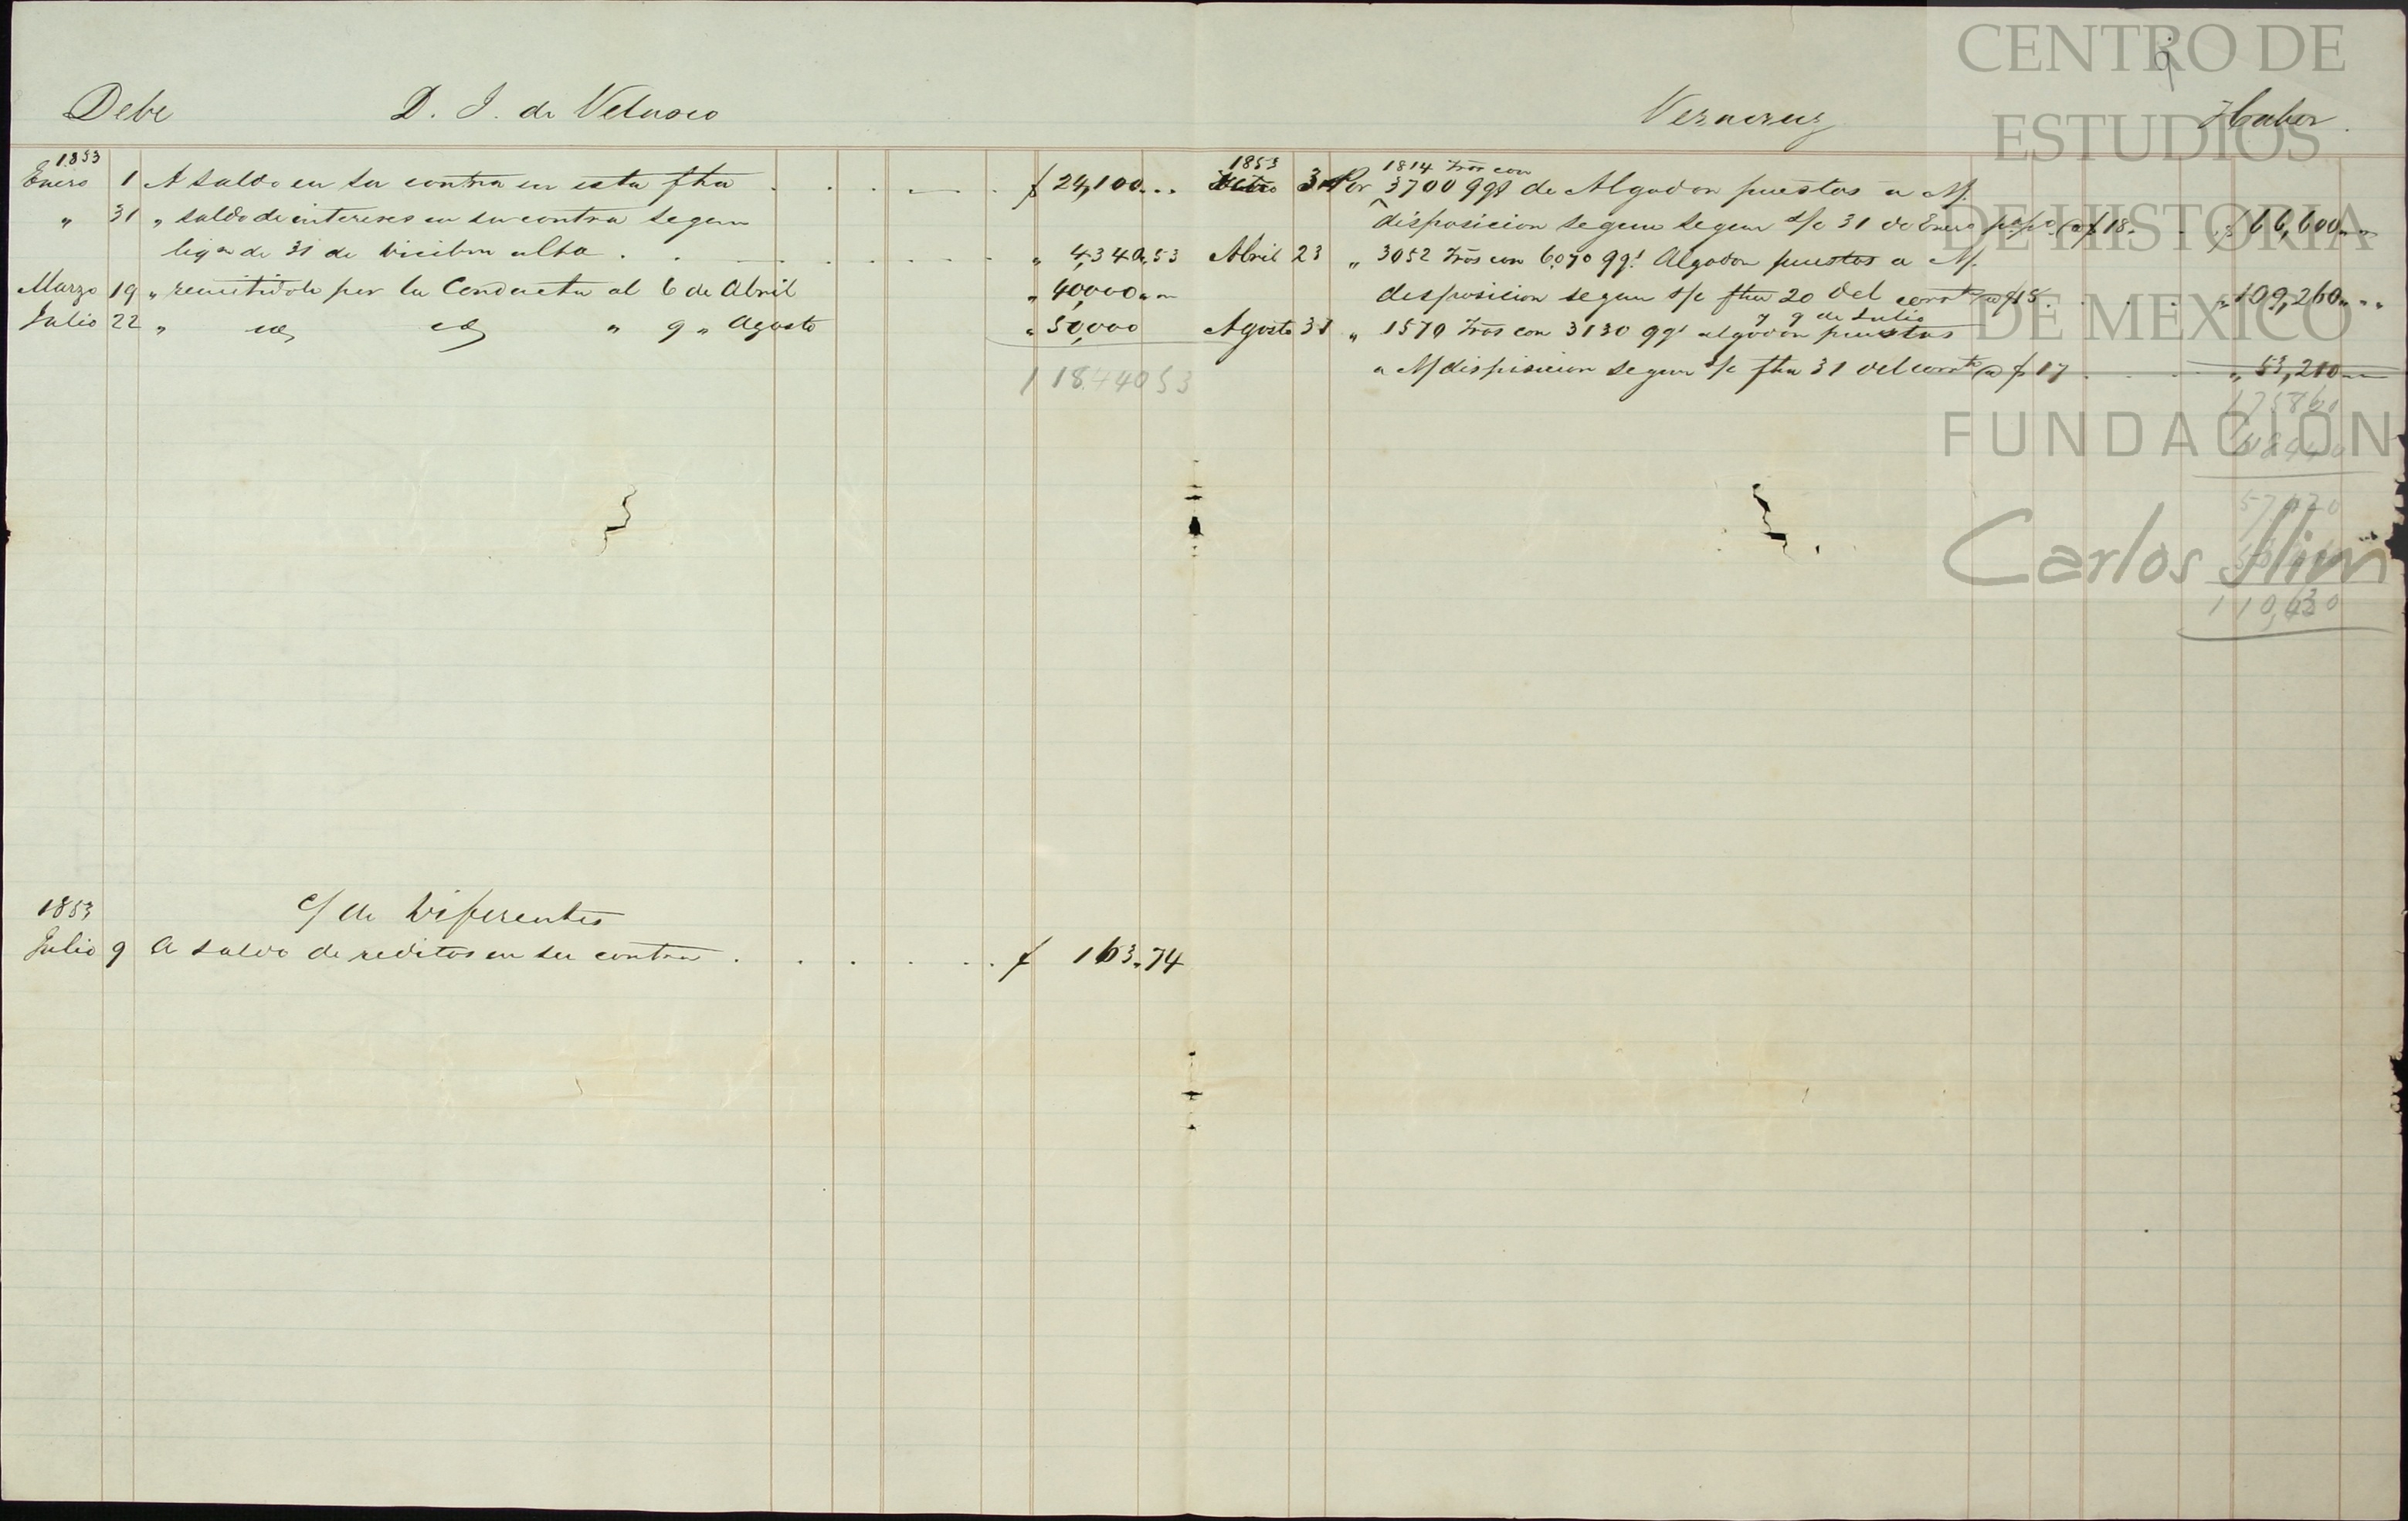 Debe D. J. de Velasco
1853
Enero 1 A saldo en su contra en esta fha . . . . . $ 24,100...
" 31 " saldo de intereses en su contra segun
liqon de 31 de Dicibre ulto . . . . . " 4,340,,53
Marzo 19 " remitidole por la Conducta al 6 de Abril " 40,000,,,,
Julio 22 " id id " 9 " Agosto " 50,000
118.440 53
1853
c/ de Diferentes
Julio 9 A saldo de reditos en su contra . . . . . $ 163.74
9
Veracruz Haber
1853 1814 tros con
31 Por 3700 qqs de Algodon puestos a M/
disposicion segun segun s/c 31 de Enero ppdo @ $18. . . $ 66,600,,,,
Abril 23 " 3052 tros con 6070 qqs Algodon puestos a M/
disposicion segun s/c fha 20 del corrte @ $18 . . . " 109,260,,,,
y 9 de Julio
Agosto 31 " 1570 tros con 3130 qqs algodon puestos
a M/ disposicion segun s/c fha 31 del corrte @ $17 . . . " 53,210
175860
118440
57420
110,630
CENTRO DE
ESTUDIOS
DE HISTORIA
DE MEXICO
FUNDACIÓN
Carlos Slim